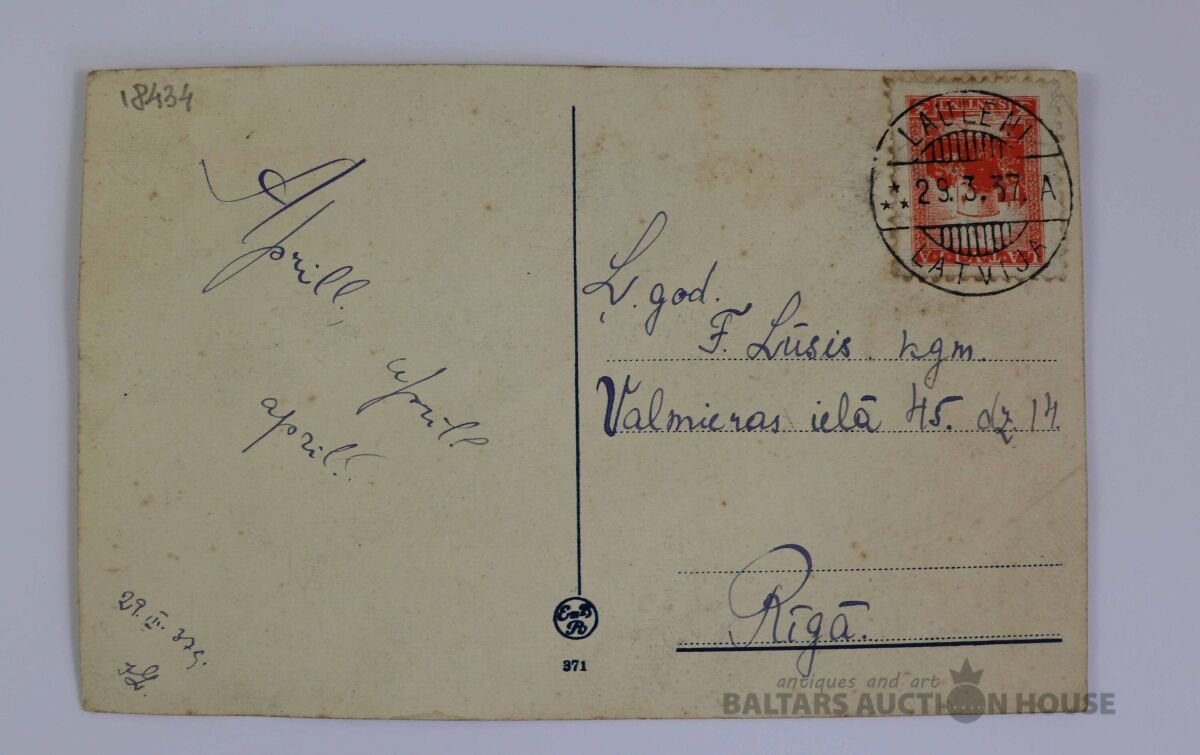 18434
Aprill,
aprill
aprill.
29. III. 37g.
LAUĻENI
29.3.37. A
LATVIJA
LATVIJA
Ļ. god.
F. Lūsis kgm.
Valmieras ielā 45. dz. 14.
Rīgā.
E B
R
371
antiques and art
BALTARS AUCTION HOUSE